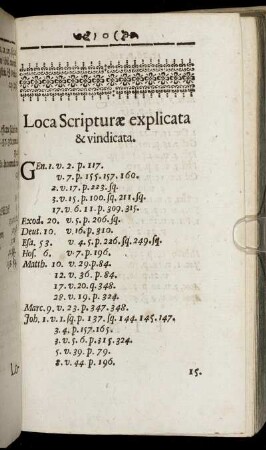 Loca Scripturæ explicata
& vindicata.
GEn. 1. v. 2. p. 117.
v. 7. p. 155. 157. 160.
2. v. 17. p. 223. sq.
3. v. 15. p. 100. sq. 211. sq.
17. v. 6. 11. p. 309. 315.
Exod. 20. v. 5. p. 206. sq.
Deut. 10. v. 16. p. 310.
Esa. 53. v. 4. 5. p. 226. sq. 249. sq.
Hos. 6. v. 7. p. 196.
Matth. 10. v. 29. p. 84.
12. v. 36. p. 84.
17. v. 20. q. 348.
28. v. 19. p. 324.
Marc. 9. v. 23. p. 347. 348.
Joh. 1. v. 1. sq. p. 137. sq. 144. 145. 147.
3. 4. p. 157. 165.
3. v. 5. 6. p. 315. 324.
5. v. 39. p. 79.
8. v. 44. p. 196.
15.
Lo-